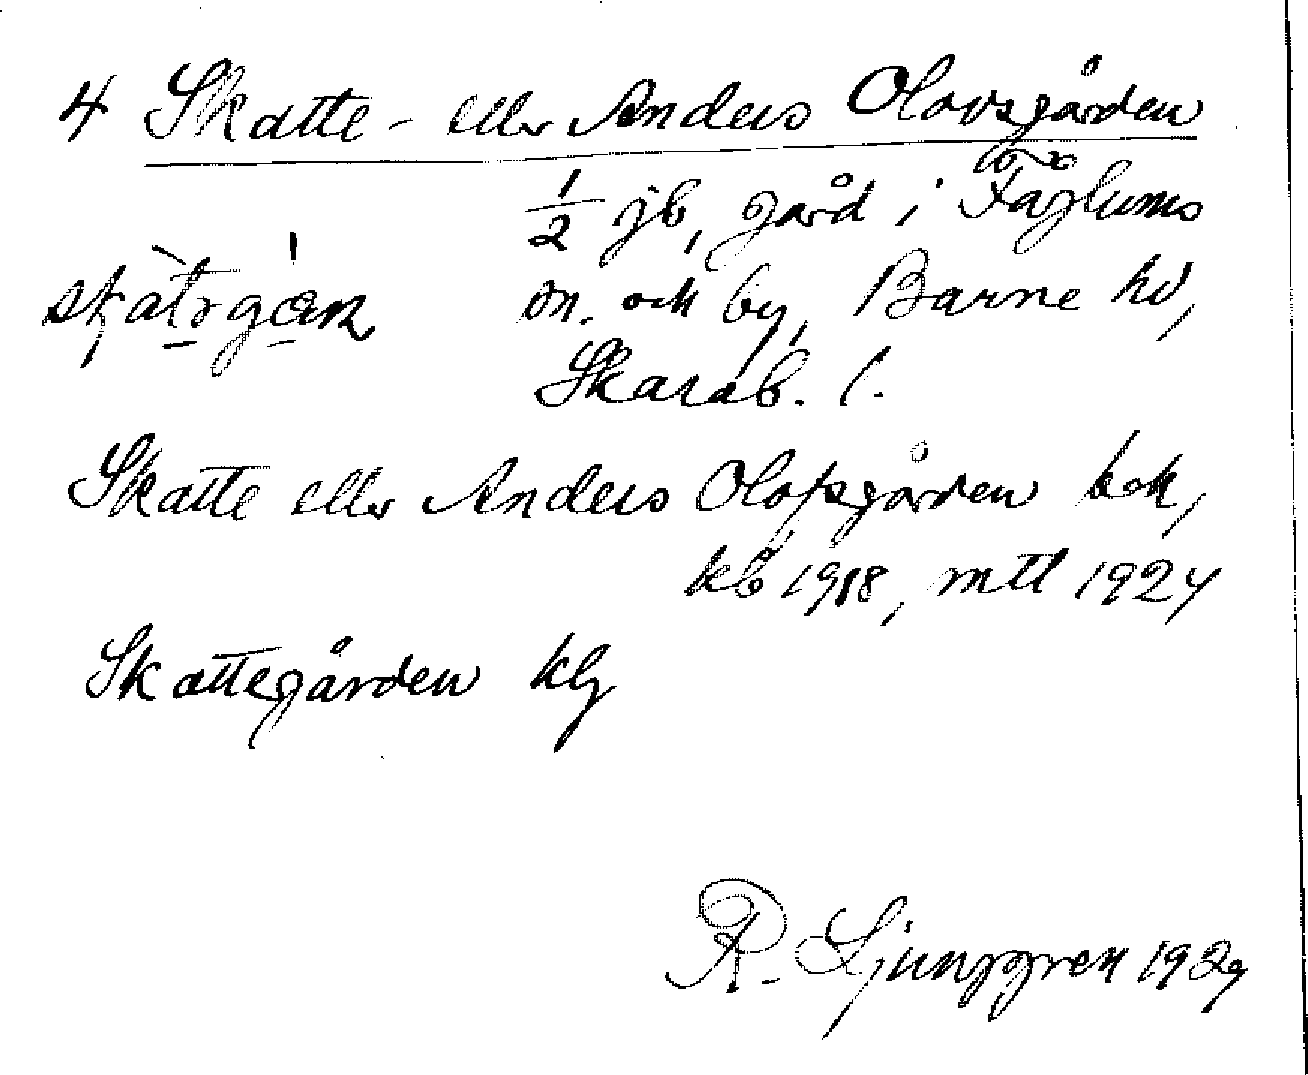 4 Skatte- eller Anders Olovsgården
1/2 jb, gård i Fåglums
sn. och by, Barne hd,
Skarab. l.
Skatte eller Anders Olofsgården bok,
kb 1918, mtl 1924
Skattegården kg
R. Ljunggren 1929